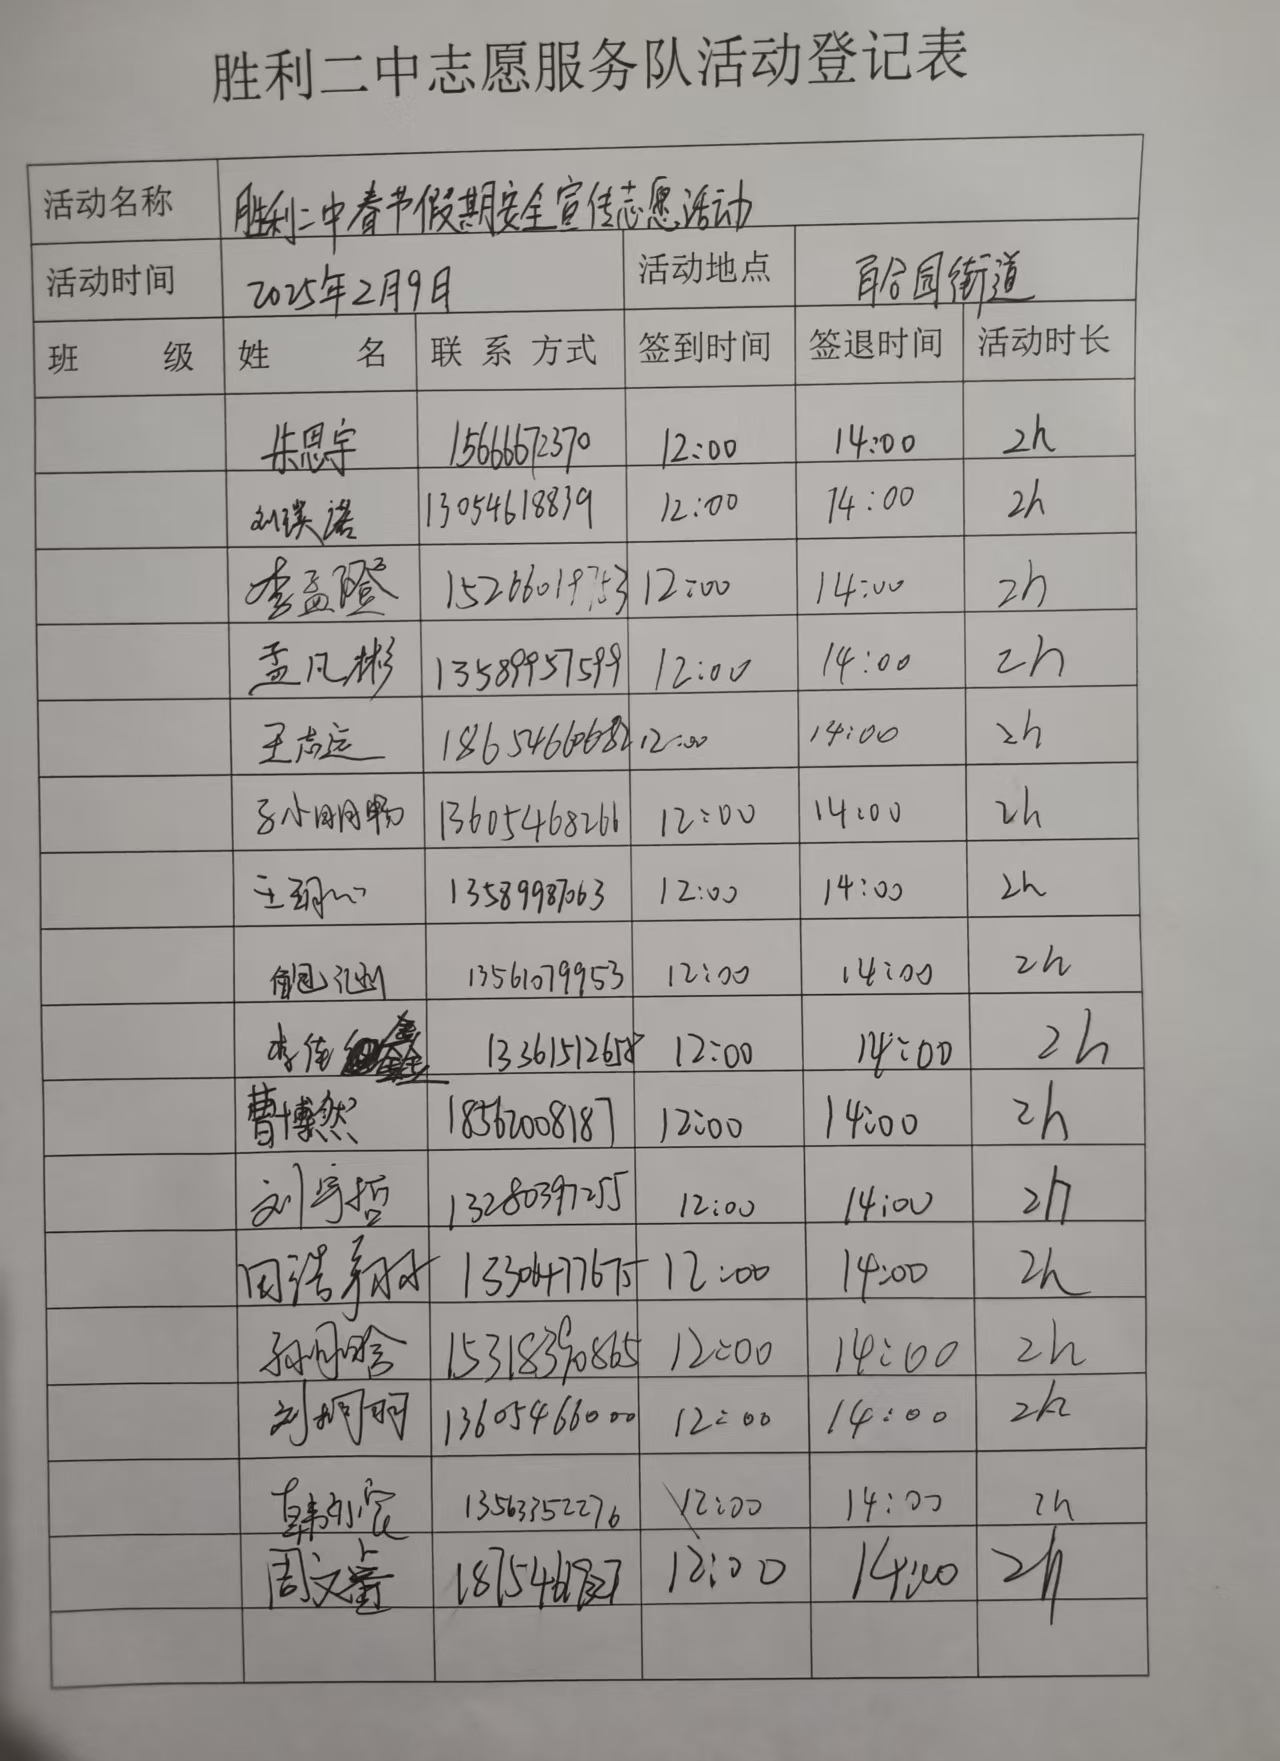 胜利二中志愿服务队活动登记表
活动名称 胜利二中春节假期安全宣传志愿活动
活动时间 2025年2月9日 活动地点 百合园街道
班 级 姓 名 联 系 方式 签到时间 签退时间 活动时长
朱恩宇 15666672370 12:00 14:00 2h
刘璞诺 13054618839 12:00 14:00 2h
李孟隥 15266019753 12:00 14:00 2h
孟凡彬 13589957599 12:00 14:00 2h
王志远 18654660682 12:00 14:00 2h
孙小明畅 13605468266 12:00 14:00 2h
王玥心 13589987063 12:00 14:00 2h
13561079953 12:00 14:00 2h
李佳鑫 13361512658 12:00 14:00 2h
曹博然 18562008187 12:00 14:00 2h
刘宇哲 13280397255 12:00 14:00 2h
田浩 13306477675 12:00 14:00 2h
孙明晗 15318390865 12:00 14:00 2h
刘桐羽 13605466000 12:00 14:00 2h
韩尔宸 13563352276 12:00 14:00 2h
周文 12:00 14:00 2h